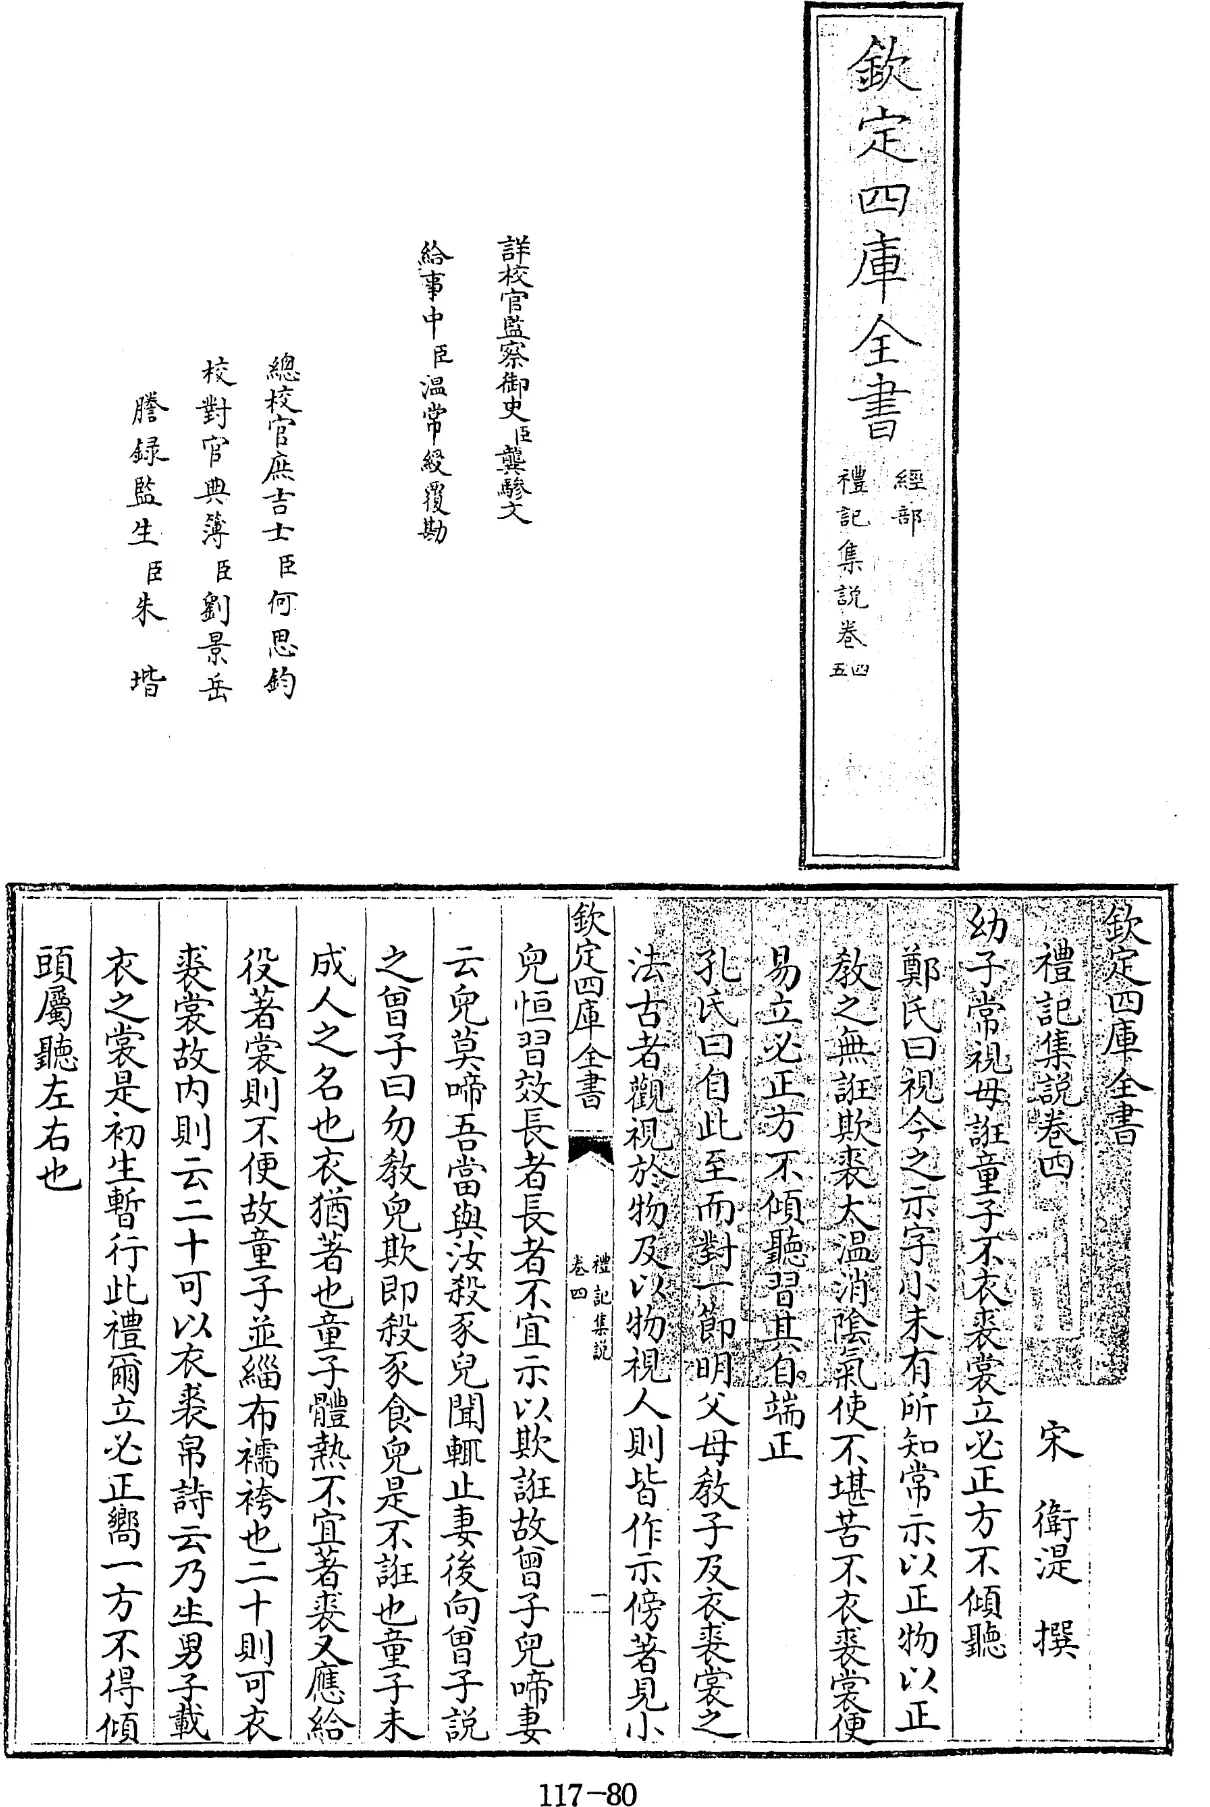 欽定四庫全書
經部
禮記集説卷四五
詳校官監察御史臣龔驂文
給事中臣温常綬覆勘
總校官庶吉士臣何思鈞
校對官典簿臣劉景岳
謄録監生臣朱堦
欽定四庫全書
禮記集説卷四
宋 衛湜 撰
幼子常視毋誑童子不衣裘裳立必正方不傾聽
鄭氏曰視今之示字小未有所知常示以正物以正
教之無誑欺裘太温消陰氣使不堪苦不衣裘裳便
易立必正方不傾聽習其自端正
孔氏曰自此至而對一節明父母教子及衣裘裳之
法古者觀視於物及以物視人則皆作示傍著見小
欽定四庫全書
禮記集説
卷四
一
兒恒習效長者長者不宜示以欺誑故曾子兒啼妻
云兒莫啼吾當與汝殺豕兒聞輒止妻後向曾子説
之曾子曰勿教兒欺即殺豕食兒是不誑也童子未
成人之名也衣猶著也童子體熱不宜著裘又應給
役著裳則不便故童子並緇布襦袴也二十則可衣
裘裳故内則云二十可以衣裘帛詩云乃生男子載
衣之裳是初生暫行此禮爾立必正嚮一方不得傾
頭屬聽左右也
117-80